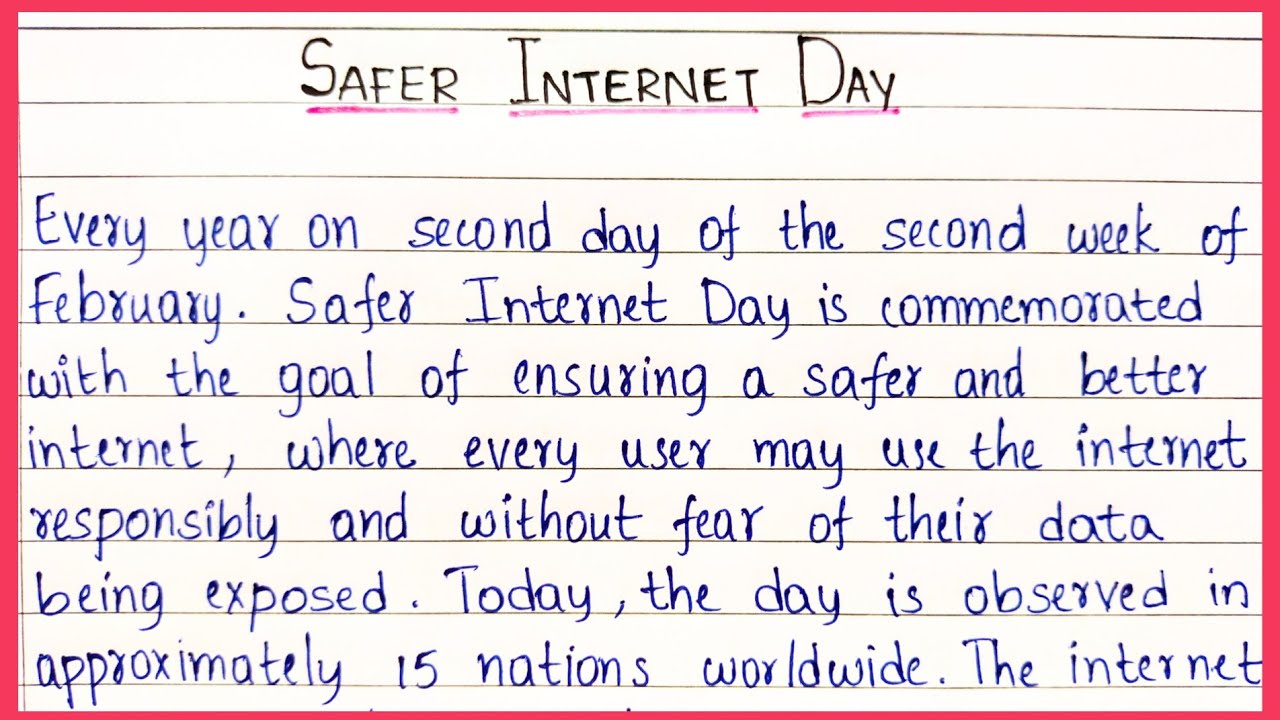 SAFER INTERNET DAY
Every year on second day of the second week of
February. Safer Internet Day is commemorated
with the goal of ensuring a safer and better
internet, where every user may use the internet
responsibly and without fear of their data
being exposed. Today, the day is observed in
approximately 15 nations worldwide. The internet